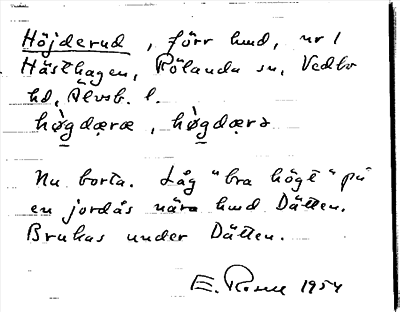 Höjderud, förr hmd, nr 1
Hästhagen, Rölanda sn, Vedbo
hd, Älvsb. l.
hø̀gdæræ, hø̀gdærə
Nu borta. Låg "bra högt" på
en jordås nära hmd Dätten.
Brukas under Dätten.
E. 1954